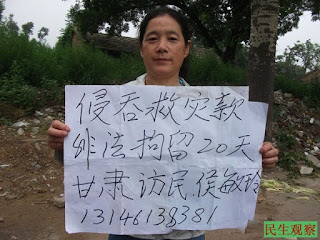 侵吞救灾款
非法拘留20天
甘肃访民.侯敏玲
13146138381
民生观察